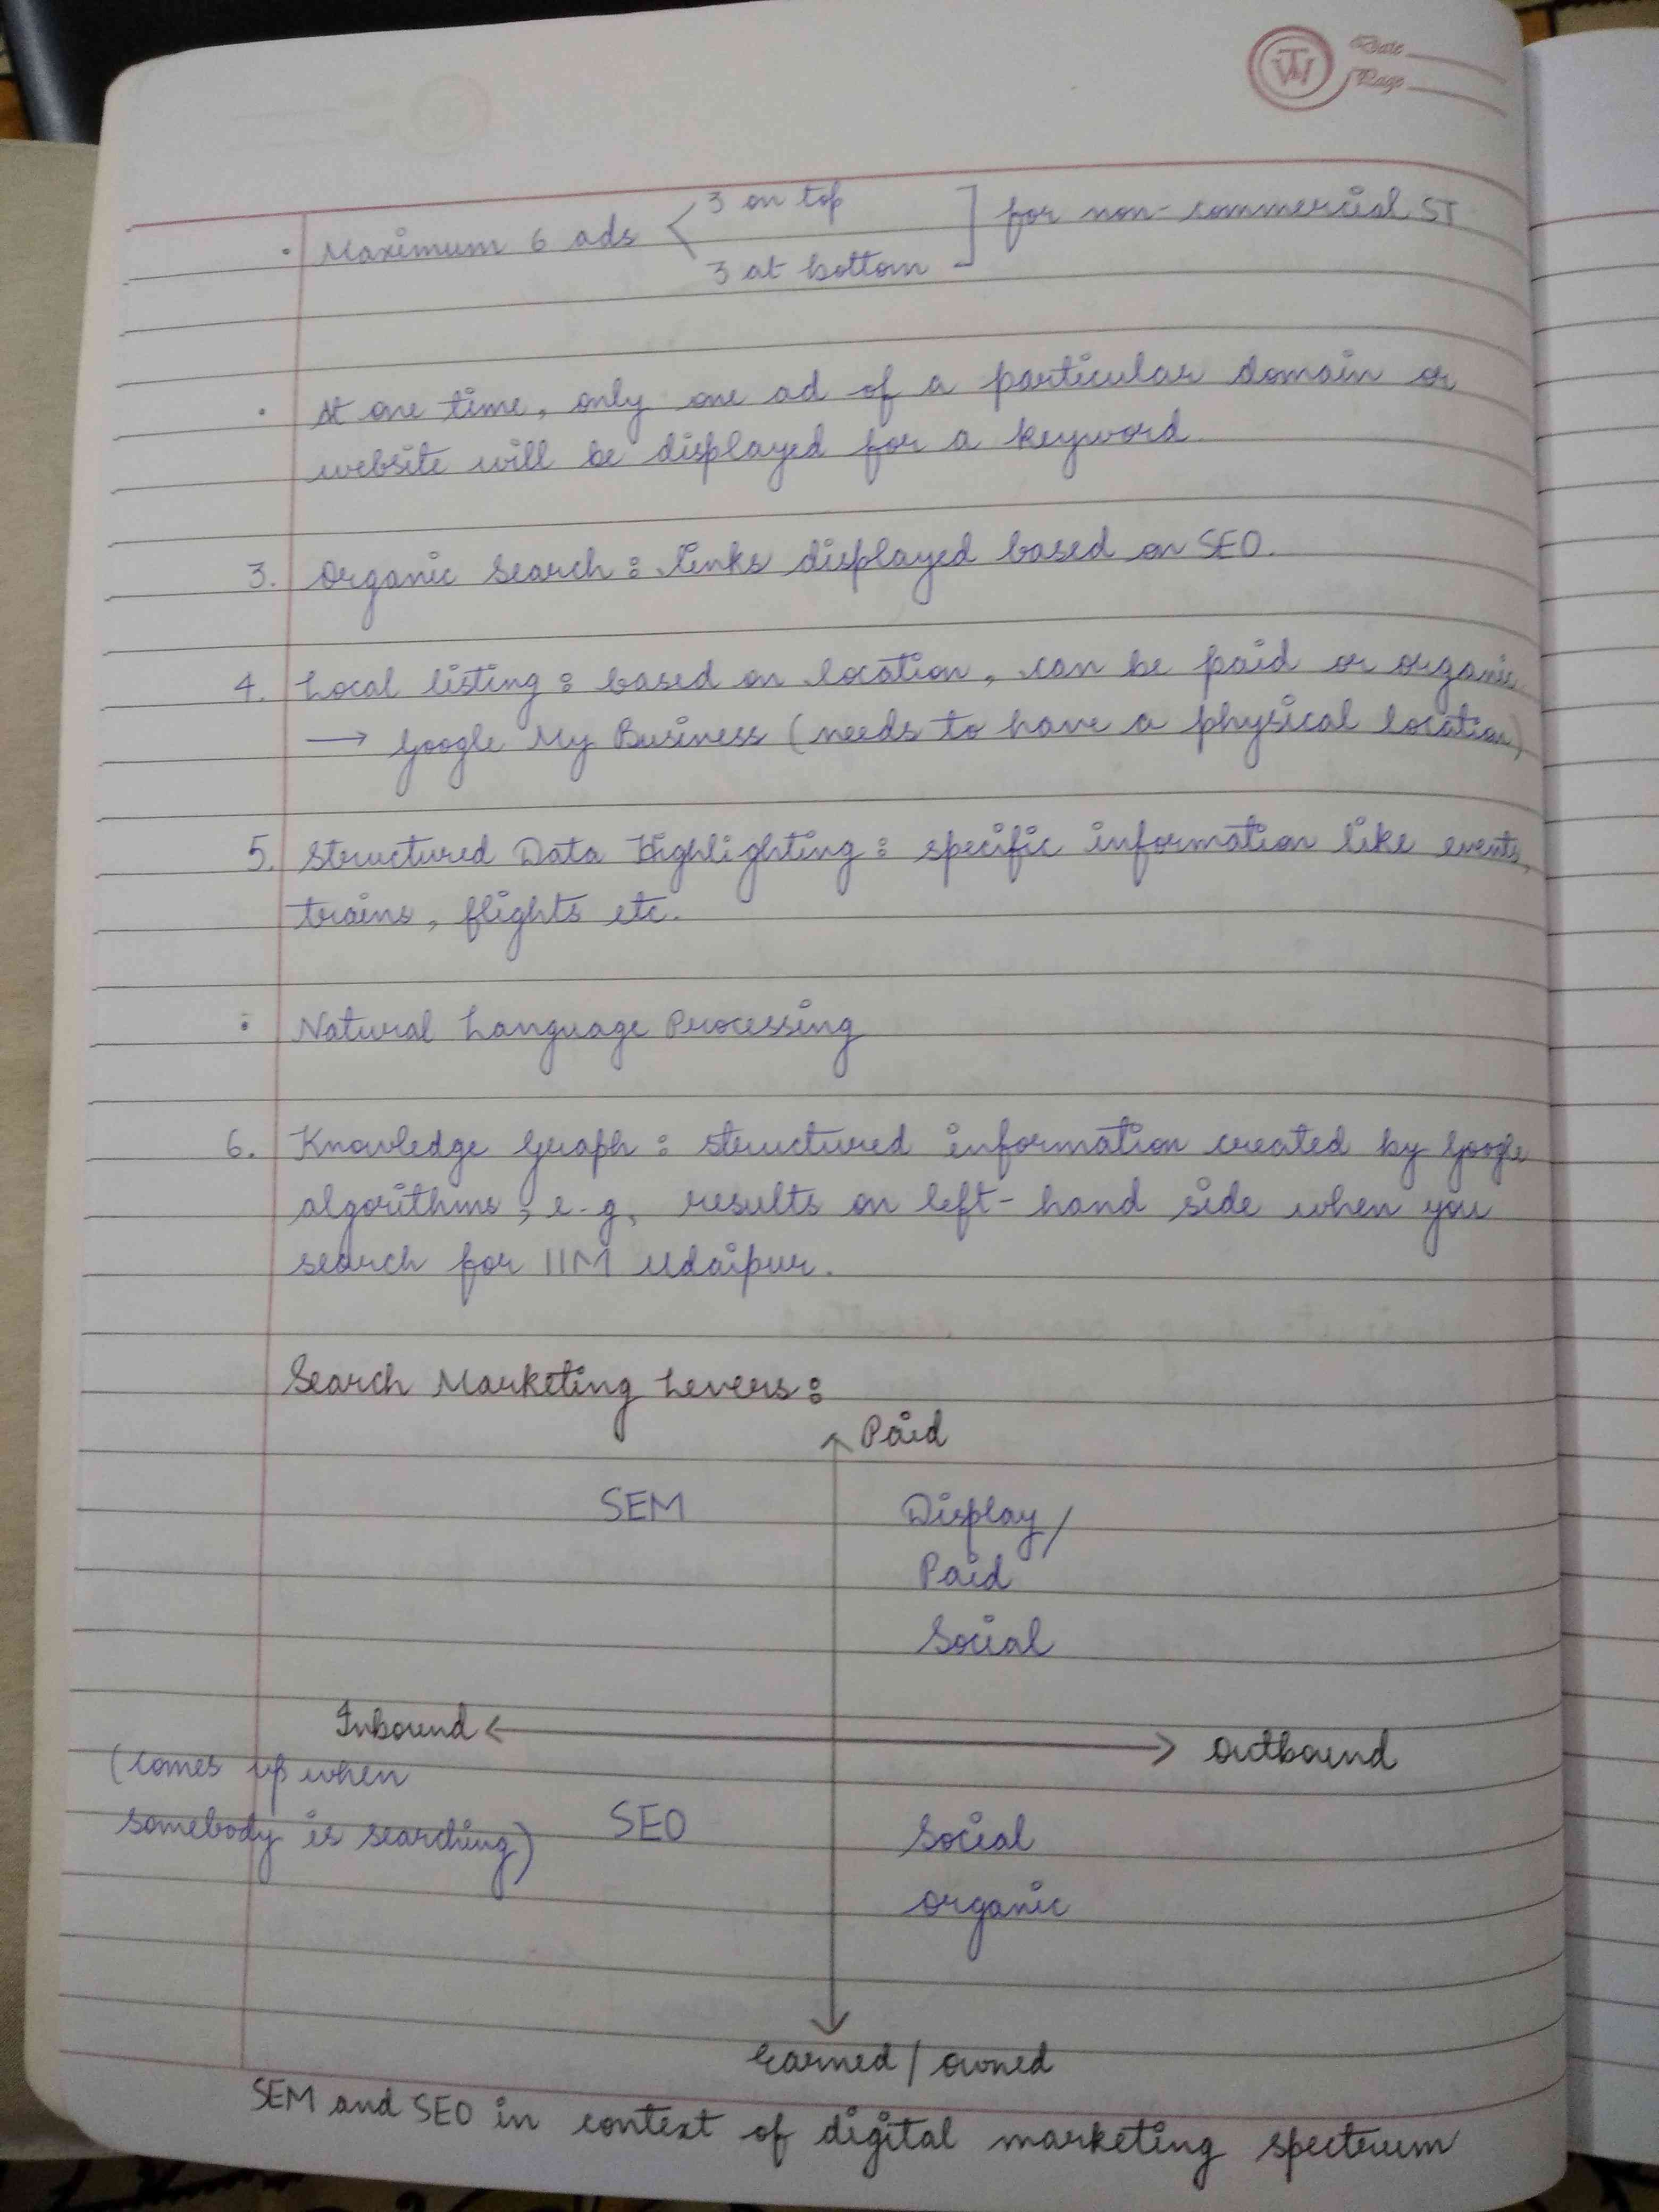 TW
Date
Page
3 on top
· Maximum 6 ads < ] for non-commercial ST
3 at bottom
· At one time, only one ad of a particular domain or
website will be displayed for a keyword.
3. Organic Search: Links displayed based on SEO.
4. Local listing: based on location, can be paid or organic.
→ Google My Business (needs to have a physical location)
5. Structured Data Highlighting: specific information like events,
trains, flights etc.
· Natural Language Processing
6. Knowledge Graph: structured information created by Google
algorithms, e.g. results on left-hand side when you
search for IIM Udaipur.
Search Marketing Levers:
Paid
SEM Display/
Paid
Social
Inbound
Outbound
(comes up when
somebody is searching)
SEO Social
organic
Earned/owned
SEM and SEO in context of digital marketing spectrum